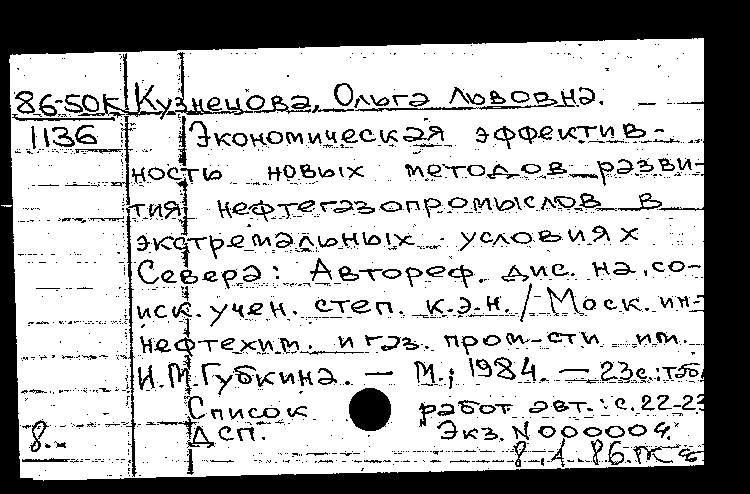 86-50К Кузнецова, Ольга Львовна.
1136 Экономическая эффектив-
ность новых методов разви-
тия нефтегазопромыслов в
экстремальных условиях
Севера: Автореф. дис. на. со-
иск. учен. степ. к.э.н. / Моск. ин-т
нефтехим. и газ. пром-сти им.
И.М. Губкина. — М.; 1984. — 23с.: табл
Список работ авт.: с. 22-23
8... ДСП. Экз. N 000004.
8.1.86.